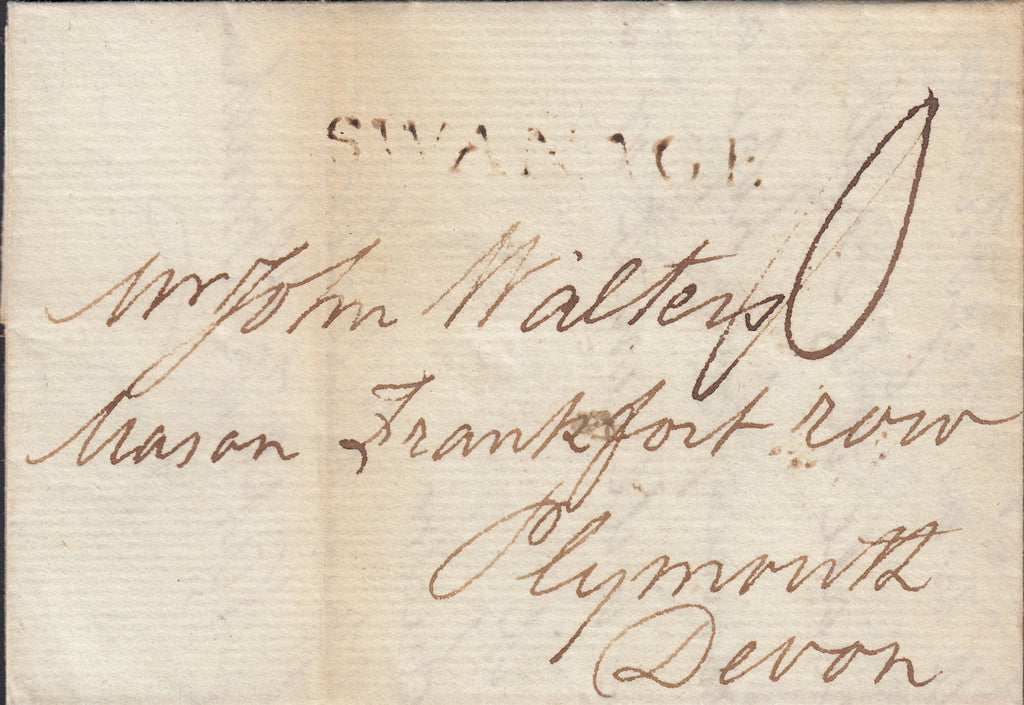 SWANAGE
Mr John Walters
Mason Frankfort row
Plymouth
Devon